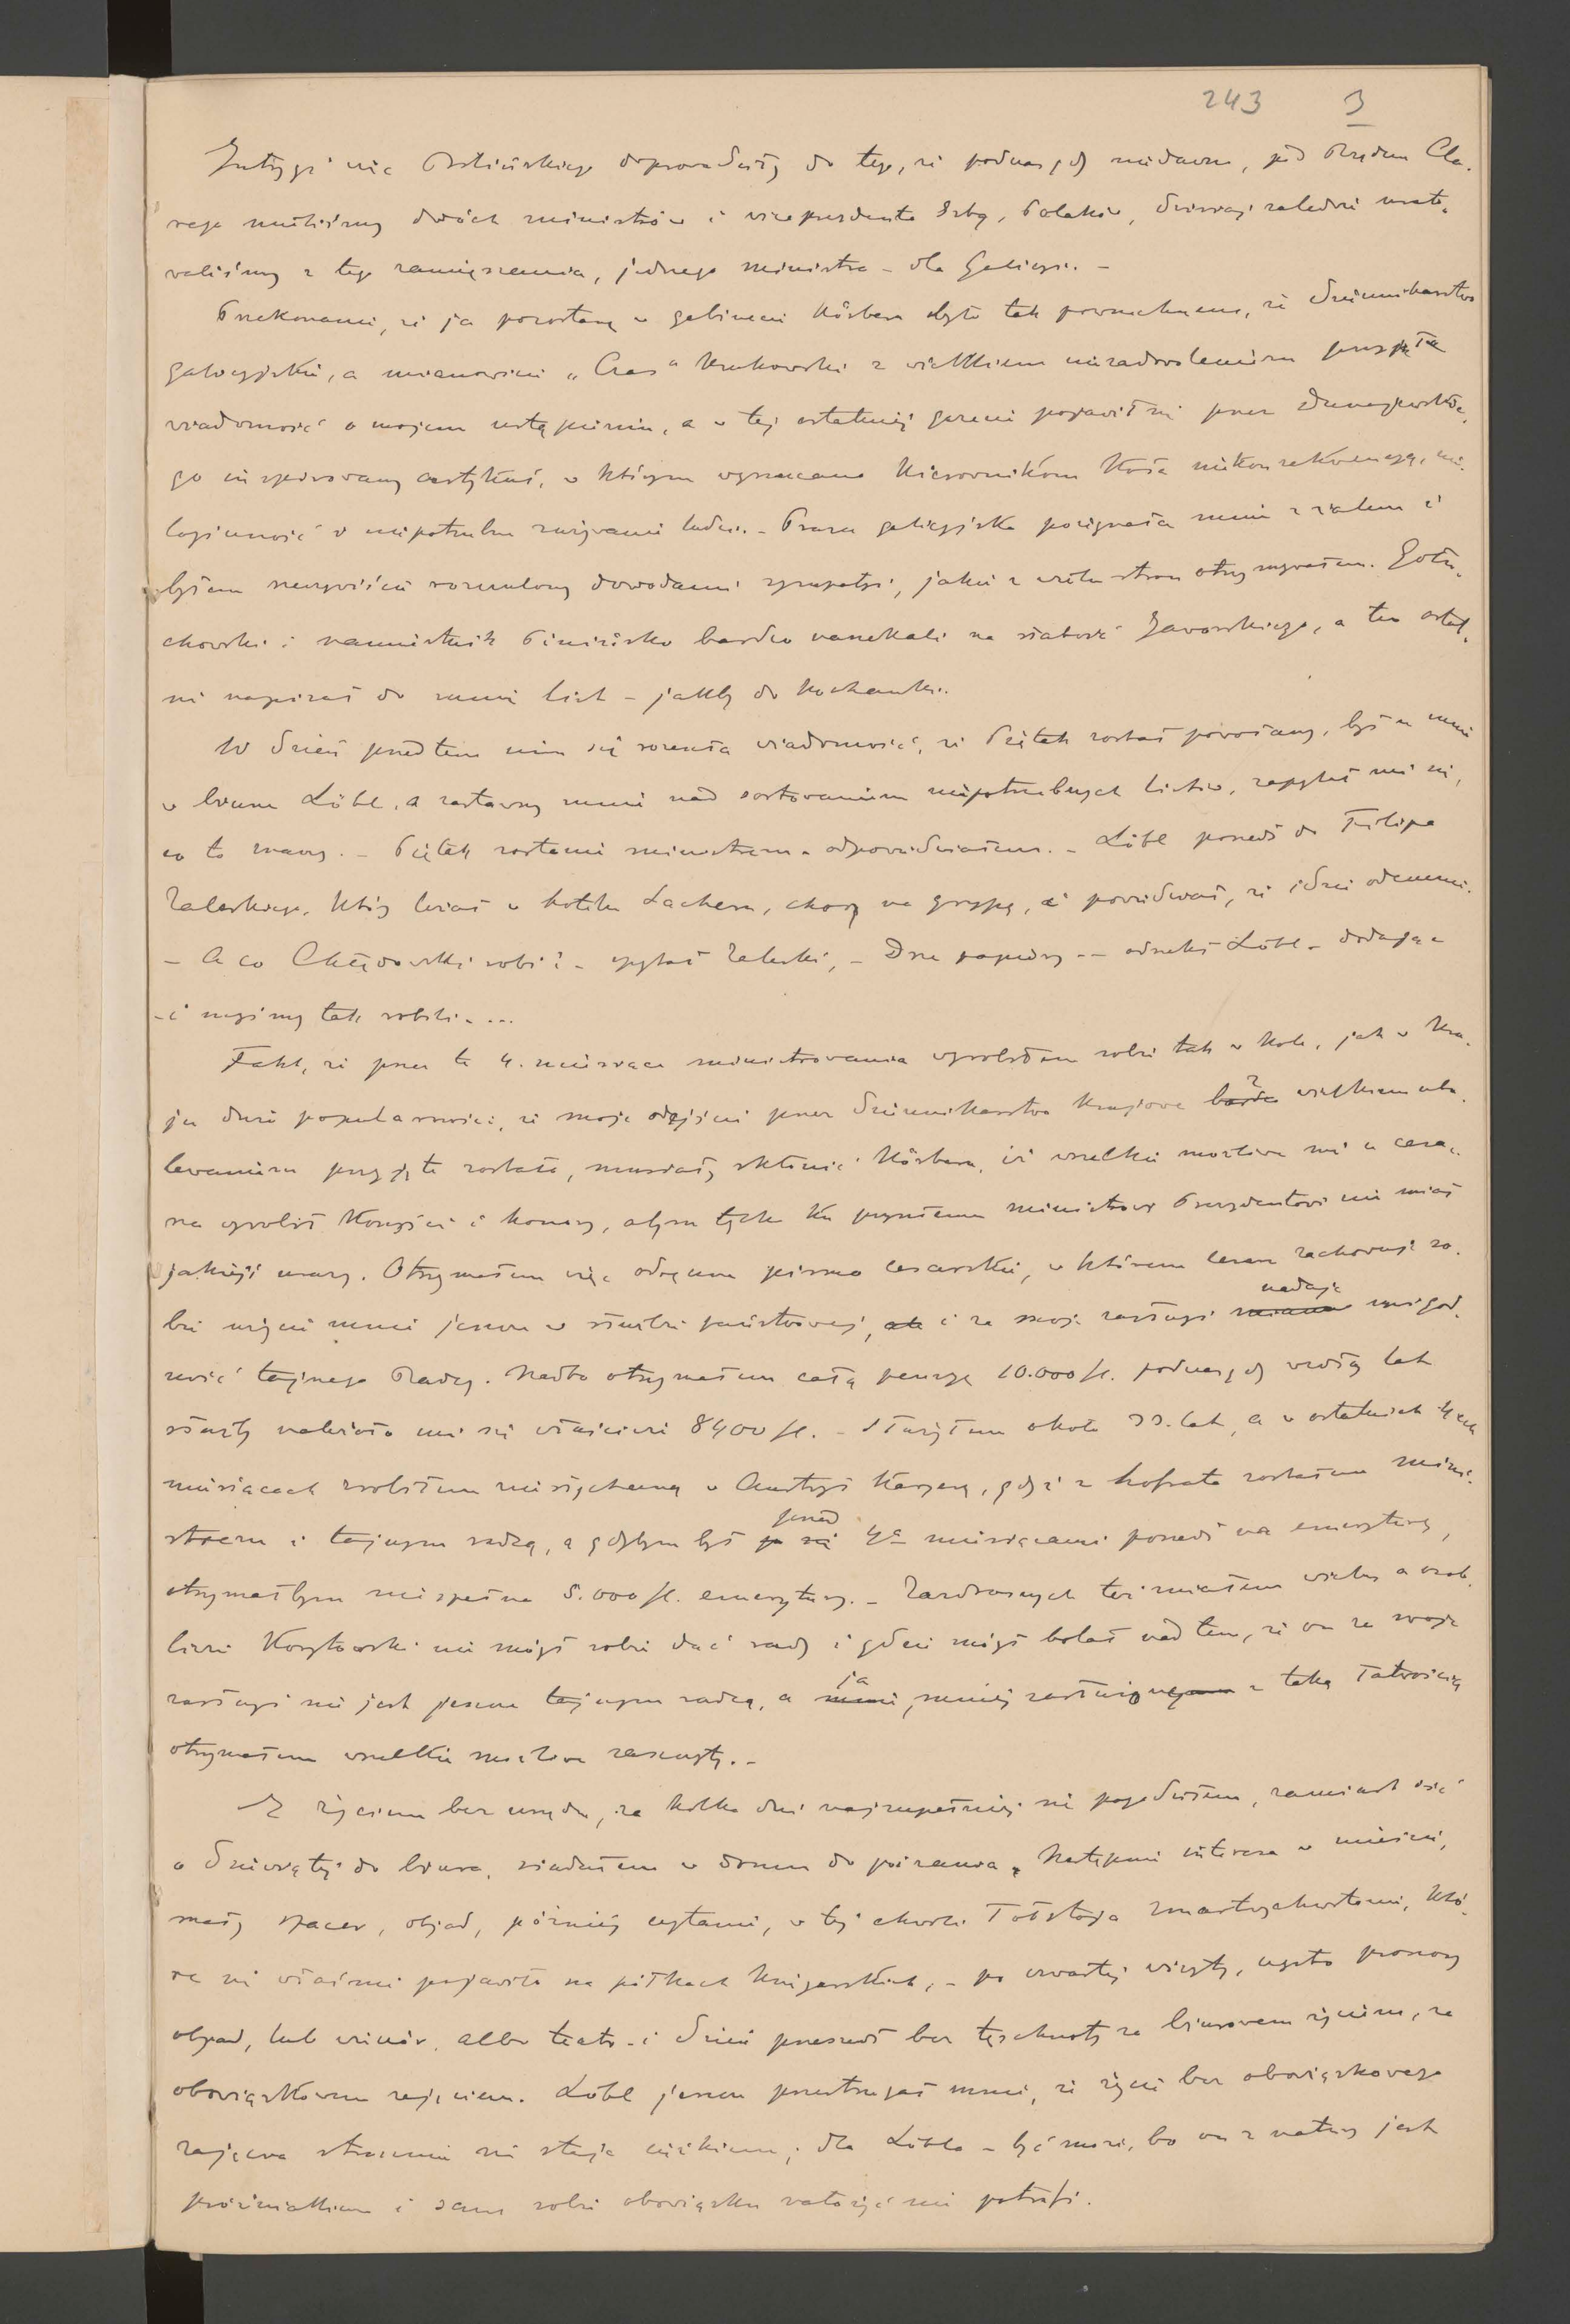 243 3
Intrygi więc Bilińskiego doprowadziły do tego, że podczas gdy niedawno, pod Rządem Cla-
rego mieliśmy dwóch ministrów i viceprezydenta Izby, Polaków, dzisiaj zaledwie urato-
waliśmy z tego zamięszania, jednego ministra – dla Galicyi. –
Przekonanie, że ja pozostanę w gabinecie Körbera było tak powszechnem, że dziennikarstwo
galicyjskie, a mianowicie „Czas" krakowski z wielkiem niezadowoleniem przyjęła
wiadomość o mojem ustąpieniu, a w tej ostatniej gazecie pojawił się przez Dunajewskie-
go inspirowany artykuł, w którym wyrzucano kierownikom Koła niekonsekwencyę, nie-
logiczność i niepotrzebne zużywanie ludzi. – Prasa galicyjska pożegnała mnie z żalem i
byłem rzeczywiście rozczulony dowodami sympatyi, jakie z wielu stron otrzymywałem. Gołu-
chowski i namiestnik Piniński bardzo narzekali na słabość Jaworskiego, a ten ostat-
ni napisał do mnie list – jakby do kochanki.
W dzień przedtem nim się rozeszła wiadomość, że Piętak został powołany, był u mnie
w biurze Löbl, a zastawszy mnie nad sortowaniem niepotrzebnych listów, zapytał mnie się,
co to znaczy. – Piętak zostanie ministrem – odpowiedziałem. – Löbl poszedł do Filipa
Zaleskiego, który leżał w hotelu Sachera, chory na grypę, i powiedział, że idzie odemnie.
– A co Chłędowski robi? – spytał Zaleski, – Drze papiery – – odrzekł Löbl – dodając
– i myśmy tak robili – ...
Fakt, że przez te 4. miesiące ministrowania wyrobiłem sobie tak w Kole, jak w kra-
ju dużo popularności, że moje odejście przez dziennikarstwo krajowe bardzo z wielkiem ubo-
lewaniem przyjęte zostało, musiały skłonić Körbera, iż wszelkie możliwe mi u cesa-
rza wyrobił korzyści i honory, abym tylko ku przyszłemu ministrowi Prezydentowi nie miał
jakiejś urazy. Otrzymałem więc odręczne pismo cesarskie, w którem cesarz zachowuje so-
bie użycie mnie jeszcze w służbie państwowej, i za moje zasługi nadaje mi god-
ność tajnego Radcy. Nadto otrzymałem całą pensyę 10.000 fl. podczas gdy wedłóg lat
służby należało mi się właściwie 8400 fl. – Służyłem około 33. lat, a w ostatnich 4ech
miesiącach zrobiłem niesłychaną w Austryi karyerę, gdyż z hofrata zostałem mini-
strem i tajnym radcą, a gdybym był przed 4ma miesiącami poszedł na emeryturę,
otrzymałbym niespełna 5.000 fl. emerytury. – Zazdrosnych też miałem wielu, a osob-
liwie Korytowski nie mógł sobie dać rady i gdzie mógł bolał nad tem, że on za swoje
zasługi nie jest jeszcze tajnym radcą, a ja, mniej zasłużony z taką łatwością
otrzymałem wszelkie możliwe zaszczyty. –
Z życiem bez urzędu, za kilka dni najzupełniej się pogodziłem, zamiast iść
o dziewiątej do biura, siadałem w domu do pisania, następnie interesa w mieście,
mały spacer, objad, później czytanie, w tej chwili Tołstoja Zmartwychwstanie, któ-
re się właśnie pojawiło na półkach księgarskich, – po czwartej wizyty, często proszony
objad, lub wieczór, albo teatr – i dzień przeszedł bez tęsknoty za biurowem życiem, za
obowiązkowem zajęciem. Löbl jeszcze przestrzegał mnie, że życie bez obowiązkowego
zajęcia strasznie się staje ciężkiem; dla Löbla – być może, bo on z natury jest
próżniakiem i sam sobie obowiązku nałożyć nie potrafi.